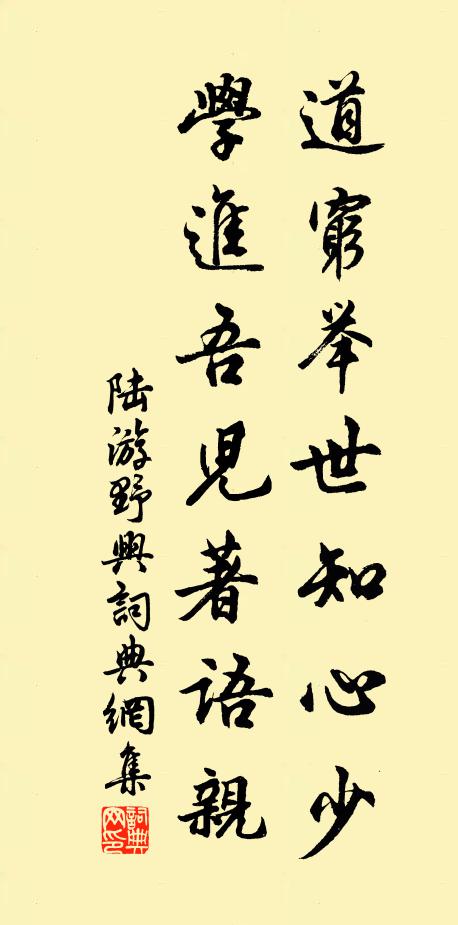 道窮举世知心少
學進吾児著語親
陆游野興詞典網集
詞典网印